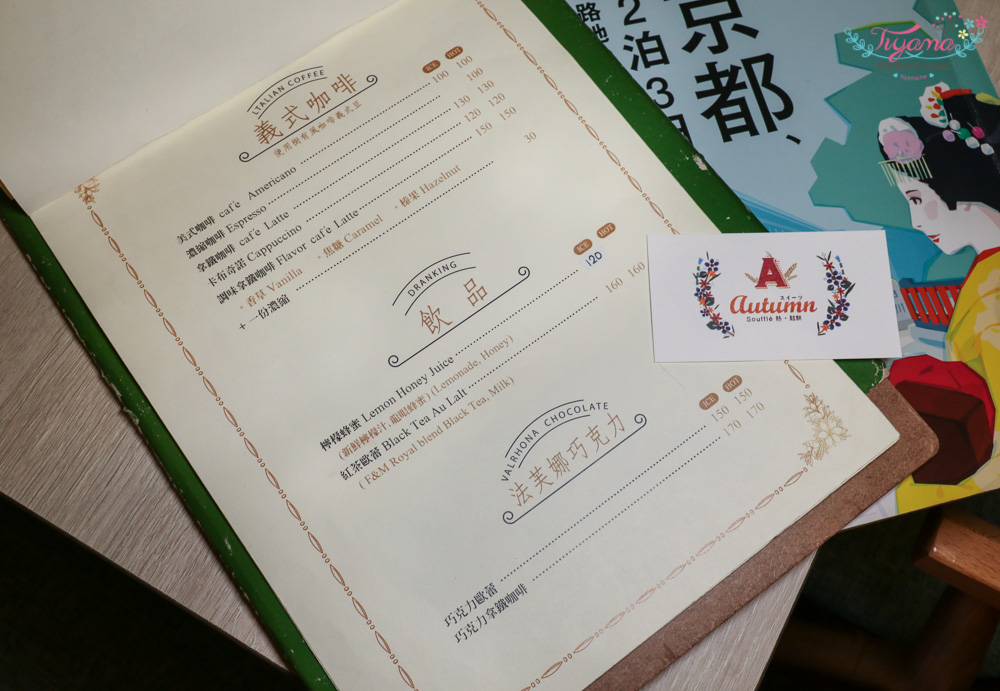 ITALIAN COFFEE
義式咖啡
使用樹有風咖啡義式豆
ICE HOT
美式咖啡 café Americano 100 100
濃縮咖啡 Espresso 100
拿鐵咖啡 café Latte 130 130
卡布奇諾 Cappuccino 120 120
調味拿鐵咖啡 Flavor café Latte 150 150
◦香草 Vanilla ◦焦糖 Caramel ◦榛果 Hazelnut
+一份濃縮 30
DRANKING
飲品
ICE HOT
檸檬蜂蜜 Lemon Honey Juice 120
(新鮮檸檬汁.龍眼蜂蜜) (Lemonade, Honey)
紅茶歐蕾 Black Tea Au Lait 160 160
( F&M Royal blend Black Tea, Milk)
VALRHONA CHOCOLATE
法芙娜巧克力
ICE HOT
巧克力歐蕾 150 150
巧克力拿鐵咖啡 170 170
A
スイーツ
autumn
Soufflé 熱・鬆餅
京都、
2泊3日
Tiyama